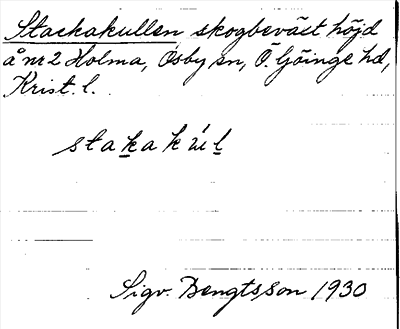 Stackakullen skogbeväxt höjd
å nr 2 Holma, Osby sn, Ö. Göinge hd,
Krist. l.
stakakúl
Sigv. Bengtsson 1930